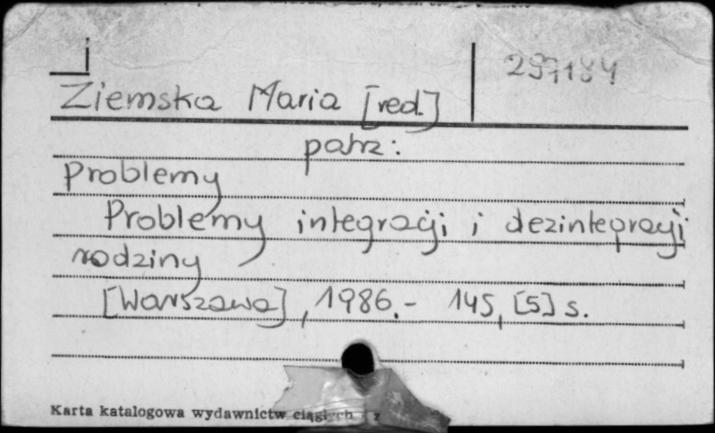 297184
Ziemska Maria [red.]
patrz:
Problemy
Problemy integracji i dezintegracji
rodziny
[Warszawa], 1986.- 145, [5] s.
Karta katalogowa wydawnictw ciągłych